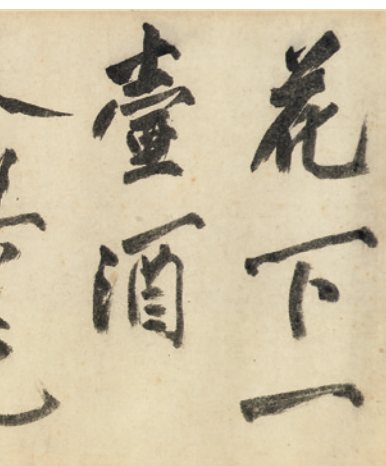 花下一
壺酒